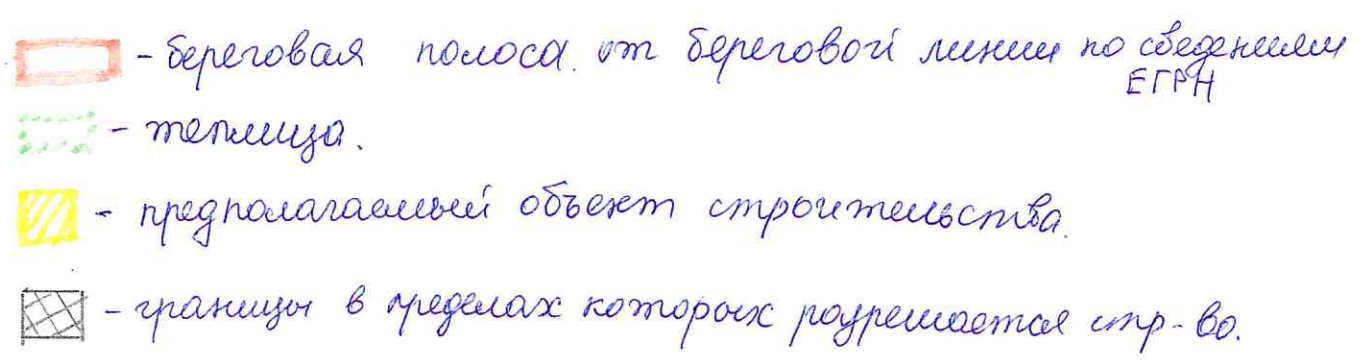 - береговая полоса. от береговой линии по сведениям
ЕГРН
- теплица.
- предполагаемый объект строительства.
- границы в пределах которых разрешается стр-во.